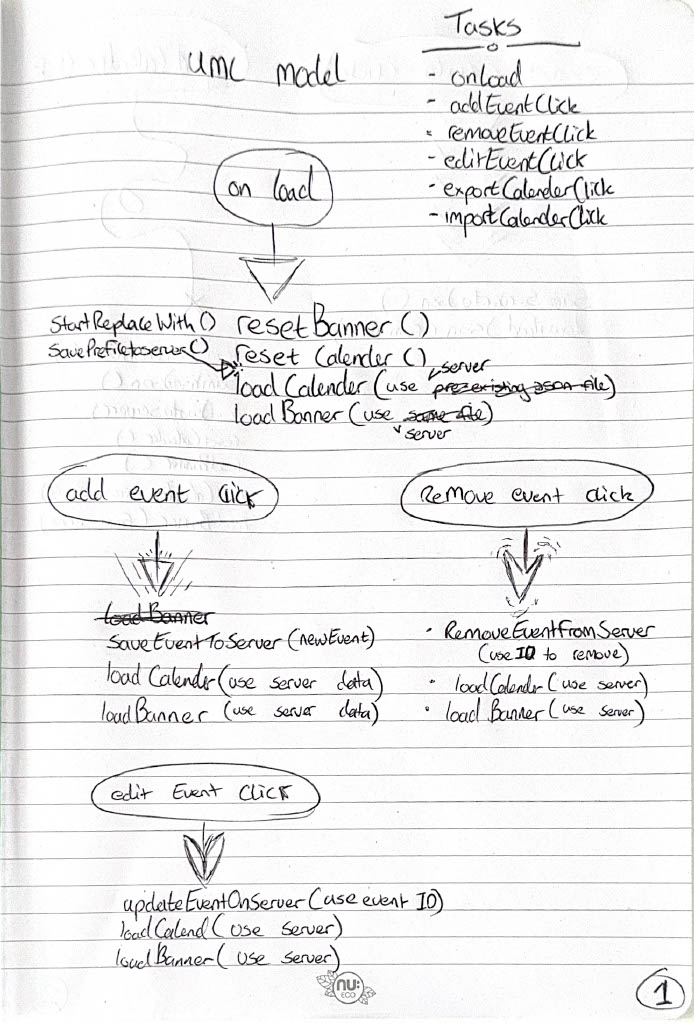 Tasks
UML model
- onLoad
- addEventClick
- removeEventClick
- editEventClick
- exportCalenderClick
- importCalenderClick
on load
StartReplaceWith() resetBanner()
SavePrefiletoserver() reset Calender()
server
load Calender (use prezexisting json file)
load Banner (use same file)
server
add event click
Remove event click
load Banner
SaveEventToServer (newEvent)
load Calender (use server data)
loadBanner (use server data)
· RemoveEventFromServer
(use ID to remove)
· loadCalender (use server)
· load Banner (use server)
edit Event Click
updateEventOnServer (use event ID)
loadCalend (use server)
loadBanner (use server)
nu:
ECO
1